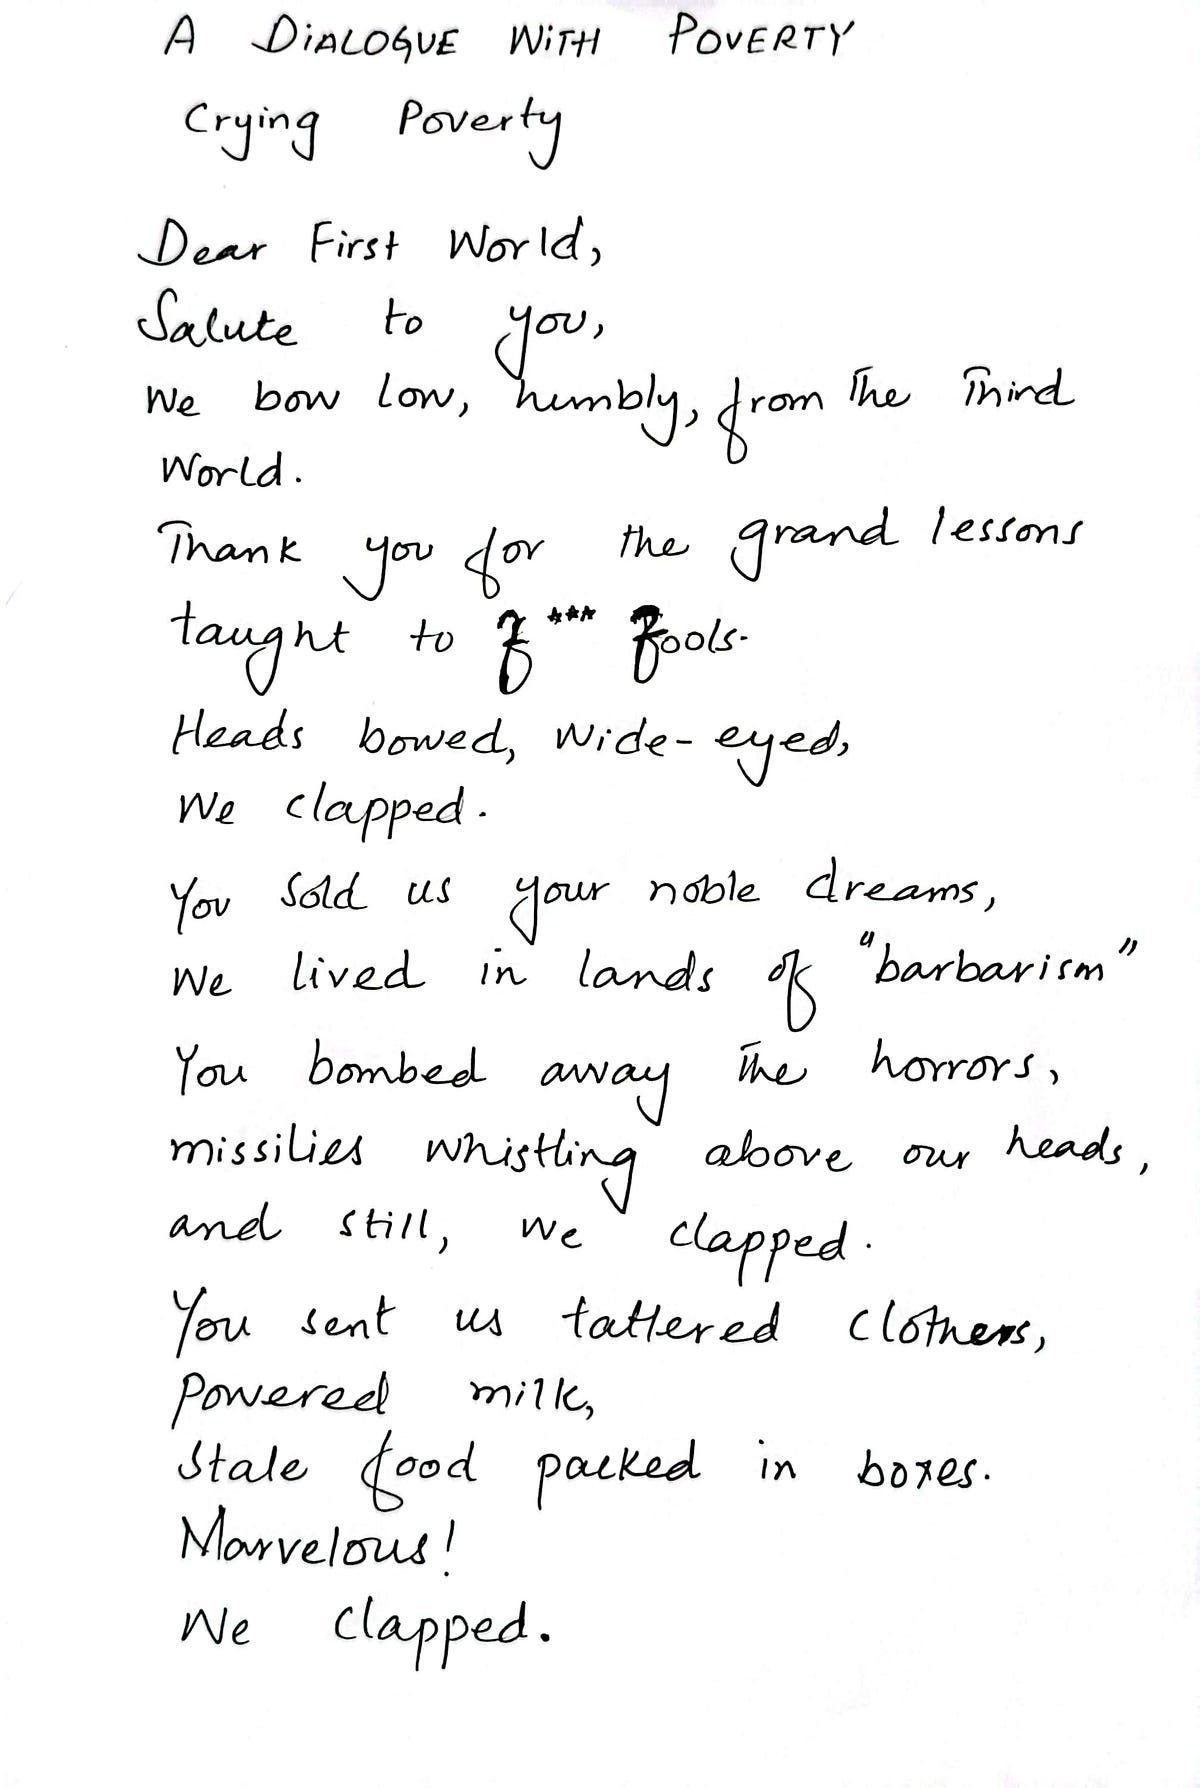 A DiALOGUE WiTH POVERTY
Crying Poverty
Dear First World,
Salute to you,
We bow low, humbly, from The Third
World.
Thank you for the grand lessons
taught to f*** fools.
Heads bowed, wide-eyed,
We clapped.
You sold us your noble dreams,
We lived in lands of "barbarism"
You bombed away the horrors,
missilies whistling above our heads,
and still, we clapped.
You sent us tattered clothers,
Powered milk,
Stale food packed in boxes.
Marvelous!
We clapped.